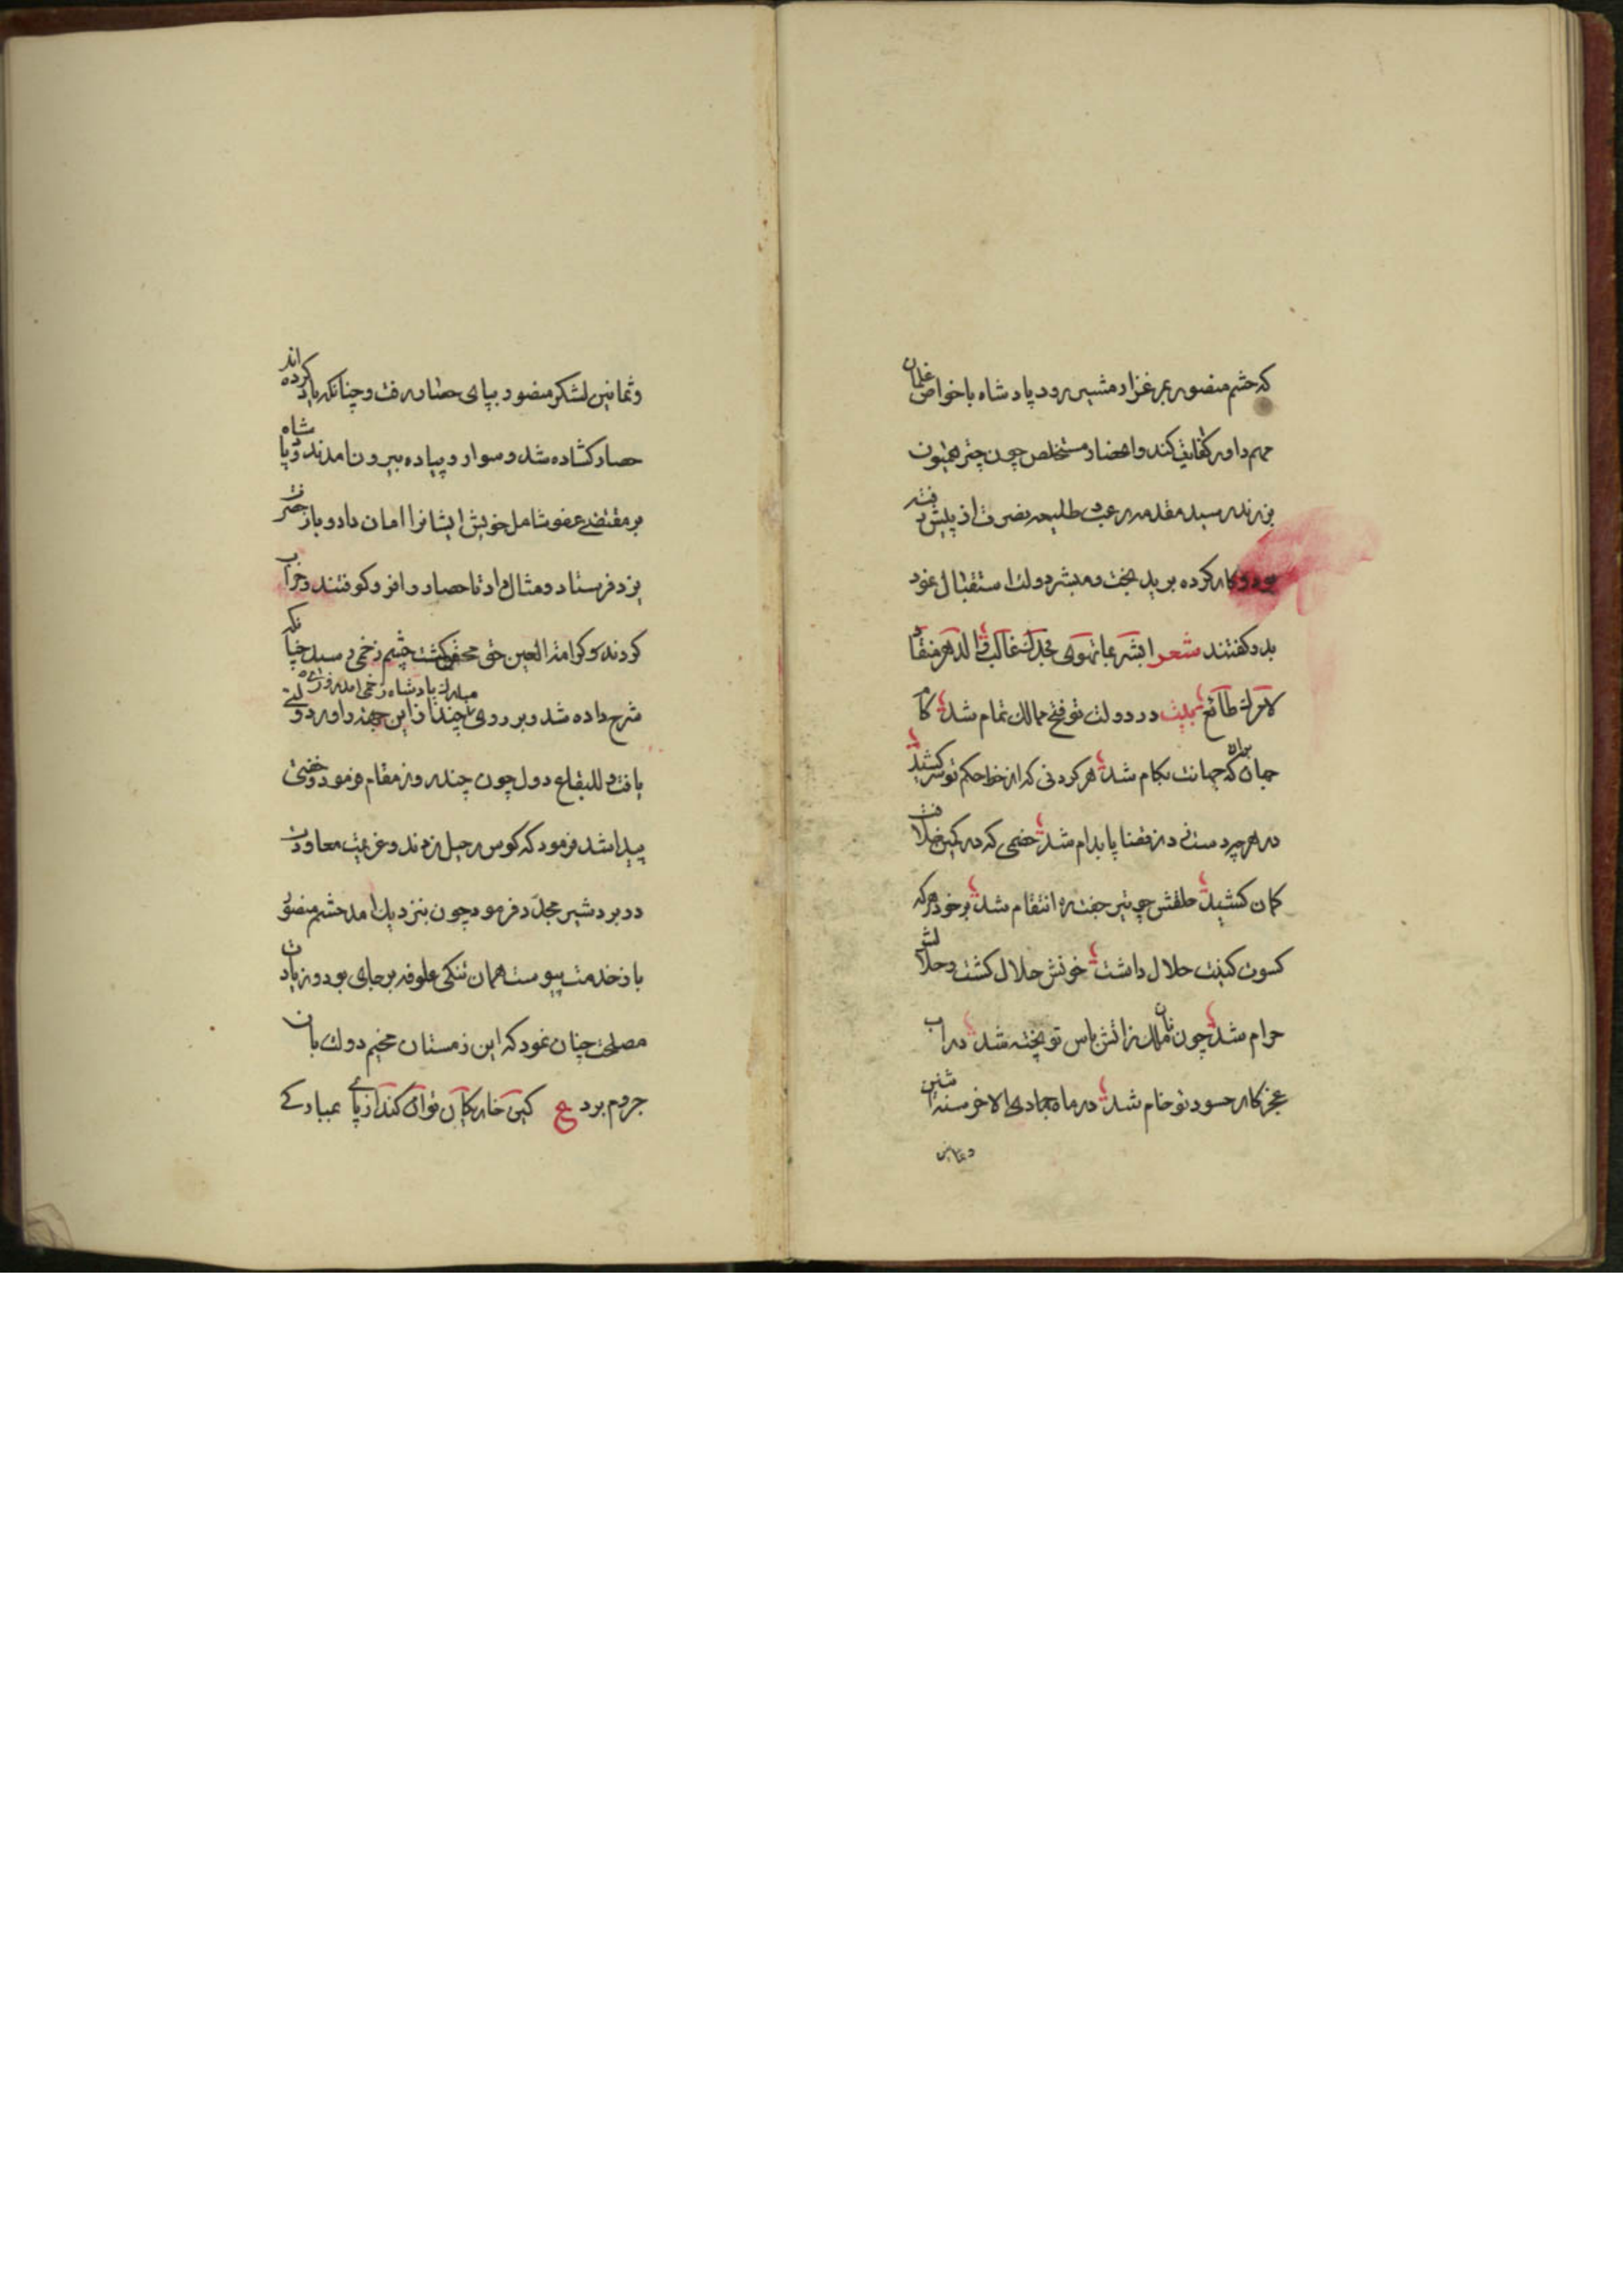 که حشم منصور بمرغزار مشیز رود پادشاه با خواص غلمان
مهم داور کفایت کند و انحصار مستخلص چون چتر همیون
بزند رسید مقدمه رعب و طلیعه نصرت از پیش رفته
بود و کار کرده برید بخت و مبشر دولت استقبال نمود
بدو گفتند شعر ابشر بما تهوی فجدک غالب والدهر منقاد
لامرک طائع بیت در دولت تو فتح ممالک تمام شد کام
جهان بران که جهانت بکام شد هر گردنی که از خط حکم تو سر کشید
در هر چه دست زد ز قضا پا بدام شد خصمی که در کمین خلافت
کمان کشید حلقش چو تیر جفت ره انتقام شد بر خود هر که
کسوت کینت حلال داشت خونش حلال گشت و حلالش
حرام شد چون نان ملک ز آتش باس تو پخته شد در آب
عجز کار حسود تو خام شد در ماه جمادی الاخر سنه اثنین
وثمانین
وثمانین لشکر منصور بپای حصار رفت و چنانکه یاد کرده اند
حصار گشاده شد و سوار و پیاده بیرون آمدند و پادشاه
بر مقتضی عفو شامل خویش ایشانرا امان داد و باز حضرت
یزد فرستاد و مثال داد تا حصار را فرو کوفتند و خراب
کردند و کرامة العین حق محقق گشت چشم زخمی رسید چنانکه
شرح داده شد و بر روی مبارک پادشاه زخمی آمد و رای دولتی
یافت و للبقاع دول چون چند روز مقام فرمود و خفتی
پیدا شد فرمود که کوس رحیل زدند و عزیمت معاودت
در بردشیر مجدد فرمود چون بنزدیک آمد حشم منصور
باز خدمت پیوست همان تنگی علوفه بر جای بود و زیادت
مصلحت چنان نمود که این زمستان مخیم دولت بان
جروم برد ع کین خار کان توان کند از پای بمبارکی